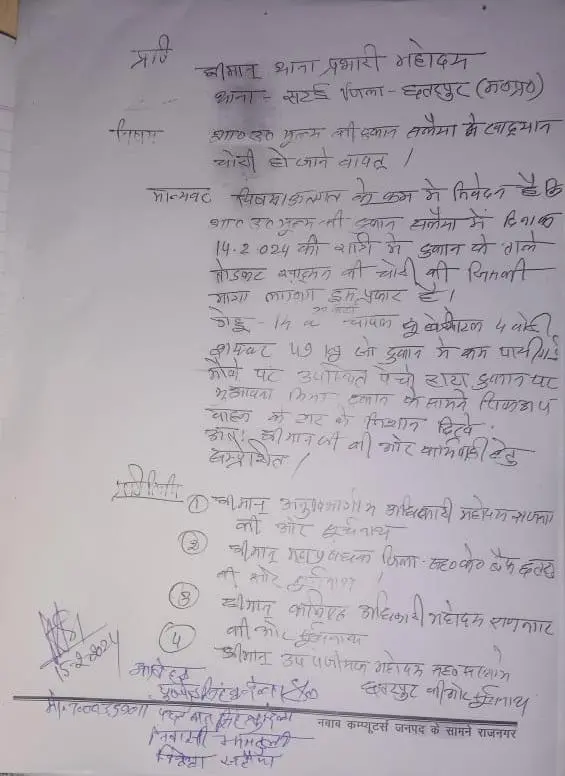 प्रति
श्रीमान् थाना प्रभारी महोदय
थाना - सटई जिला - छतरपुर (म०प्र०)
विषय शा० उ० मूल्य की दुकान सलैया के खाद्यान
चोरी हो जाने वावत् ।
मान्यवर विषयान्तर्गत के क्रम में निवेदन है कि
शा० उ० मूल्य की दुकान सलैया में दिनांक
14.2.024 की रात्री में दुकान के ताले
तोडकर खाद्यान्न की चोरी की जिसकी
मात्रा लगभग इस प्रकार है ।
गेहूं - 14 चावल 4 वोरी
शक्कर 49 kg जो दुकान में कम पायी गई
मौके पर उपस्थित पंचो द्वारा दुकान पर
किया दुकान के सामने पिकअप
वाहन के निशान दिखे
अतः श्रीमान जी की ओर कार्यवाही हेतु
सम्प्रेषित ।
प्रतिलिपी
① श्रीमान् अनुविभागीय अधिकारी महोदय राजनगर
की ओर सूचनाथ
② श्रीमान् महाप्रबंधक जिला सह० के० बैंक छतरपुर
की ओर सूचनाथ ।
③ श्रीमान् कनिष्ठ अधिकारी महोदय राजनगर
की ओर सूचनाथ
④ श्रीमान् उप पंजीयक महोदय सह०
छतरपुर की ओर सूचनाथ
15-2-2024
आवेदक
निवासी
विक्रेता सलैया
नवाब कम्प्यूटर्स जनपद के सामने राजनगर